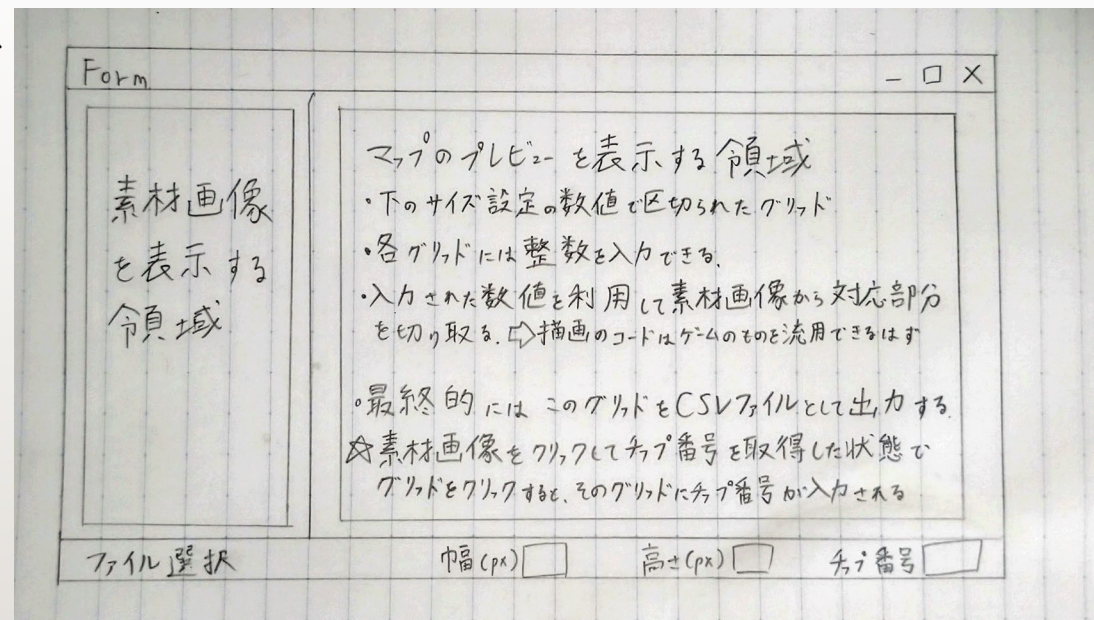 Form
素材画像
を表示する
領域
マップのプレビューを表示する領域
・下のサイズ設定の数値で区切られたグリッド
・各グリッドには整数を入力できる.
・入力された数値を利用して素材画像から対応部分
を切り取る. ⇨描画のコードはゲームのものを流用できるはず
・最終的にはこのグリッドをCSVファイルとして出力する.
☆素材画像をクリックしてチップ番号を取得した状態で
グリッドをクリックすると、そのグリッドにチップ番号が入力される
ファイル選択 幅(px) 高さ(px) チップ番号